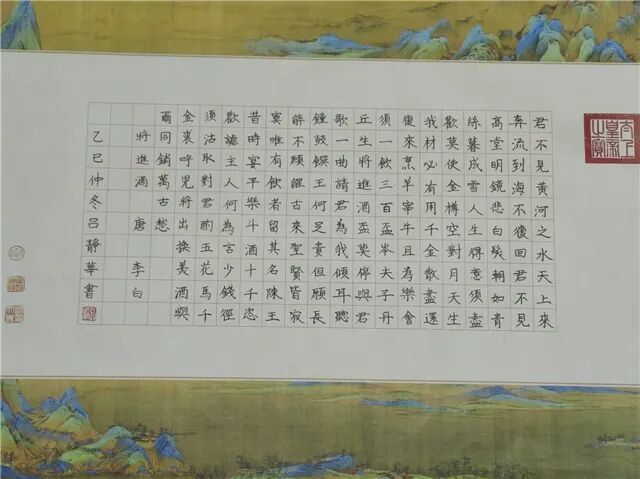 君不見黃河之水天上來
奔流到海不復回君不見
高堂明鏡悲白髮朝如青
絲暮成雪人生得意須盡
歡莫使金樽空對月天生
我材必有用千金散盡還
復來烹羊宰牛且為樂會
須一飲三百盃岑夫子丹
丘生將進酒盃莫停與君
歌一曲請君為我傾耳聽
鐘鼓饌玉何足貴但願長
醉不願醒古來聖賢皆寂
寞唯有飲者留其名陳王
昔時宴平樂斗酒十千恣
歡謔主人何為言少錢徑
須沽取對君酌五花馬千
金裘呼兒將出換美酒與
爾同銷萬古愁
將進酒 唐 李白
乙巳仲冬吕靜華書